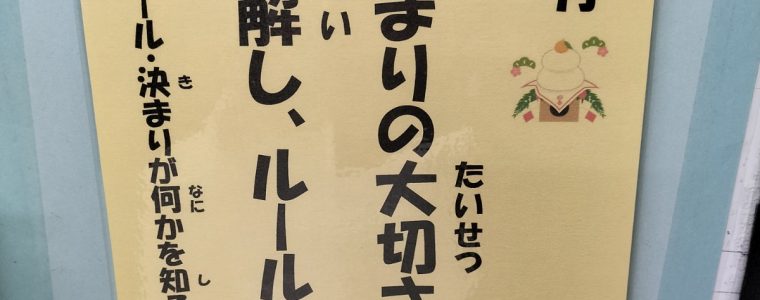 月
たいせつ
まりの大切さ
い
解し、ルール
き なに し
ール・決まりが何かを知る